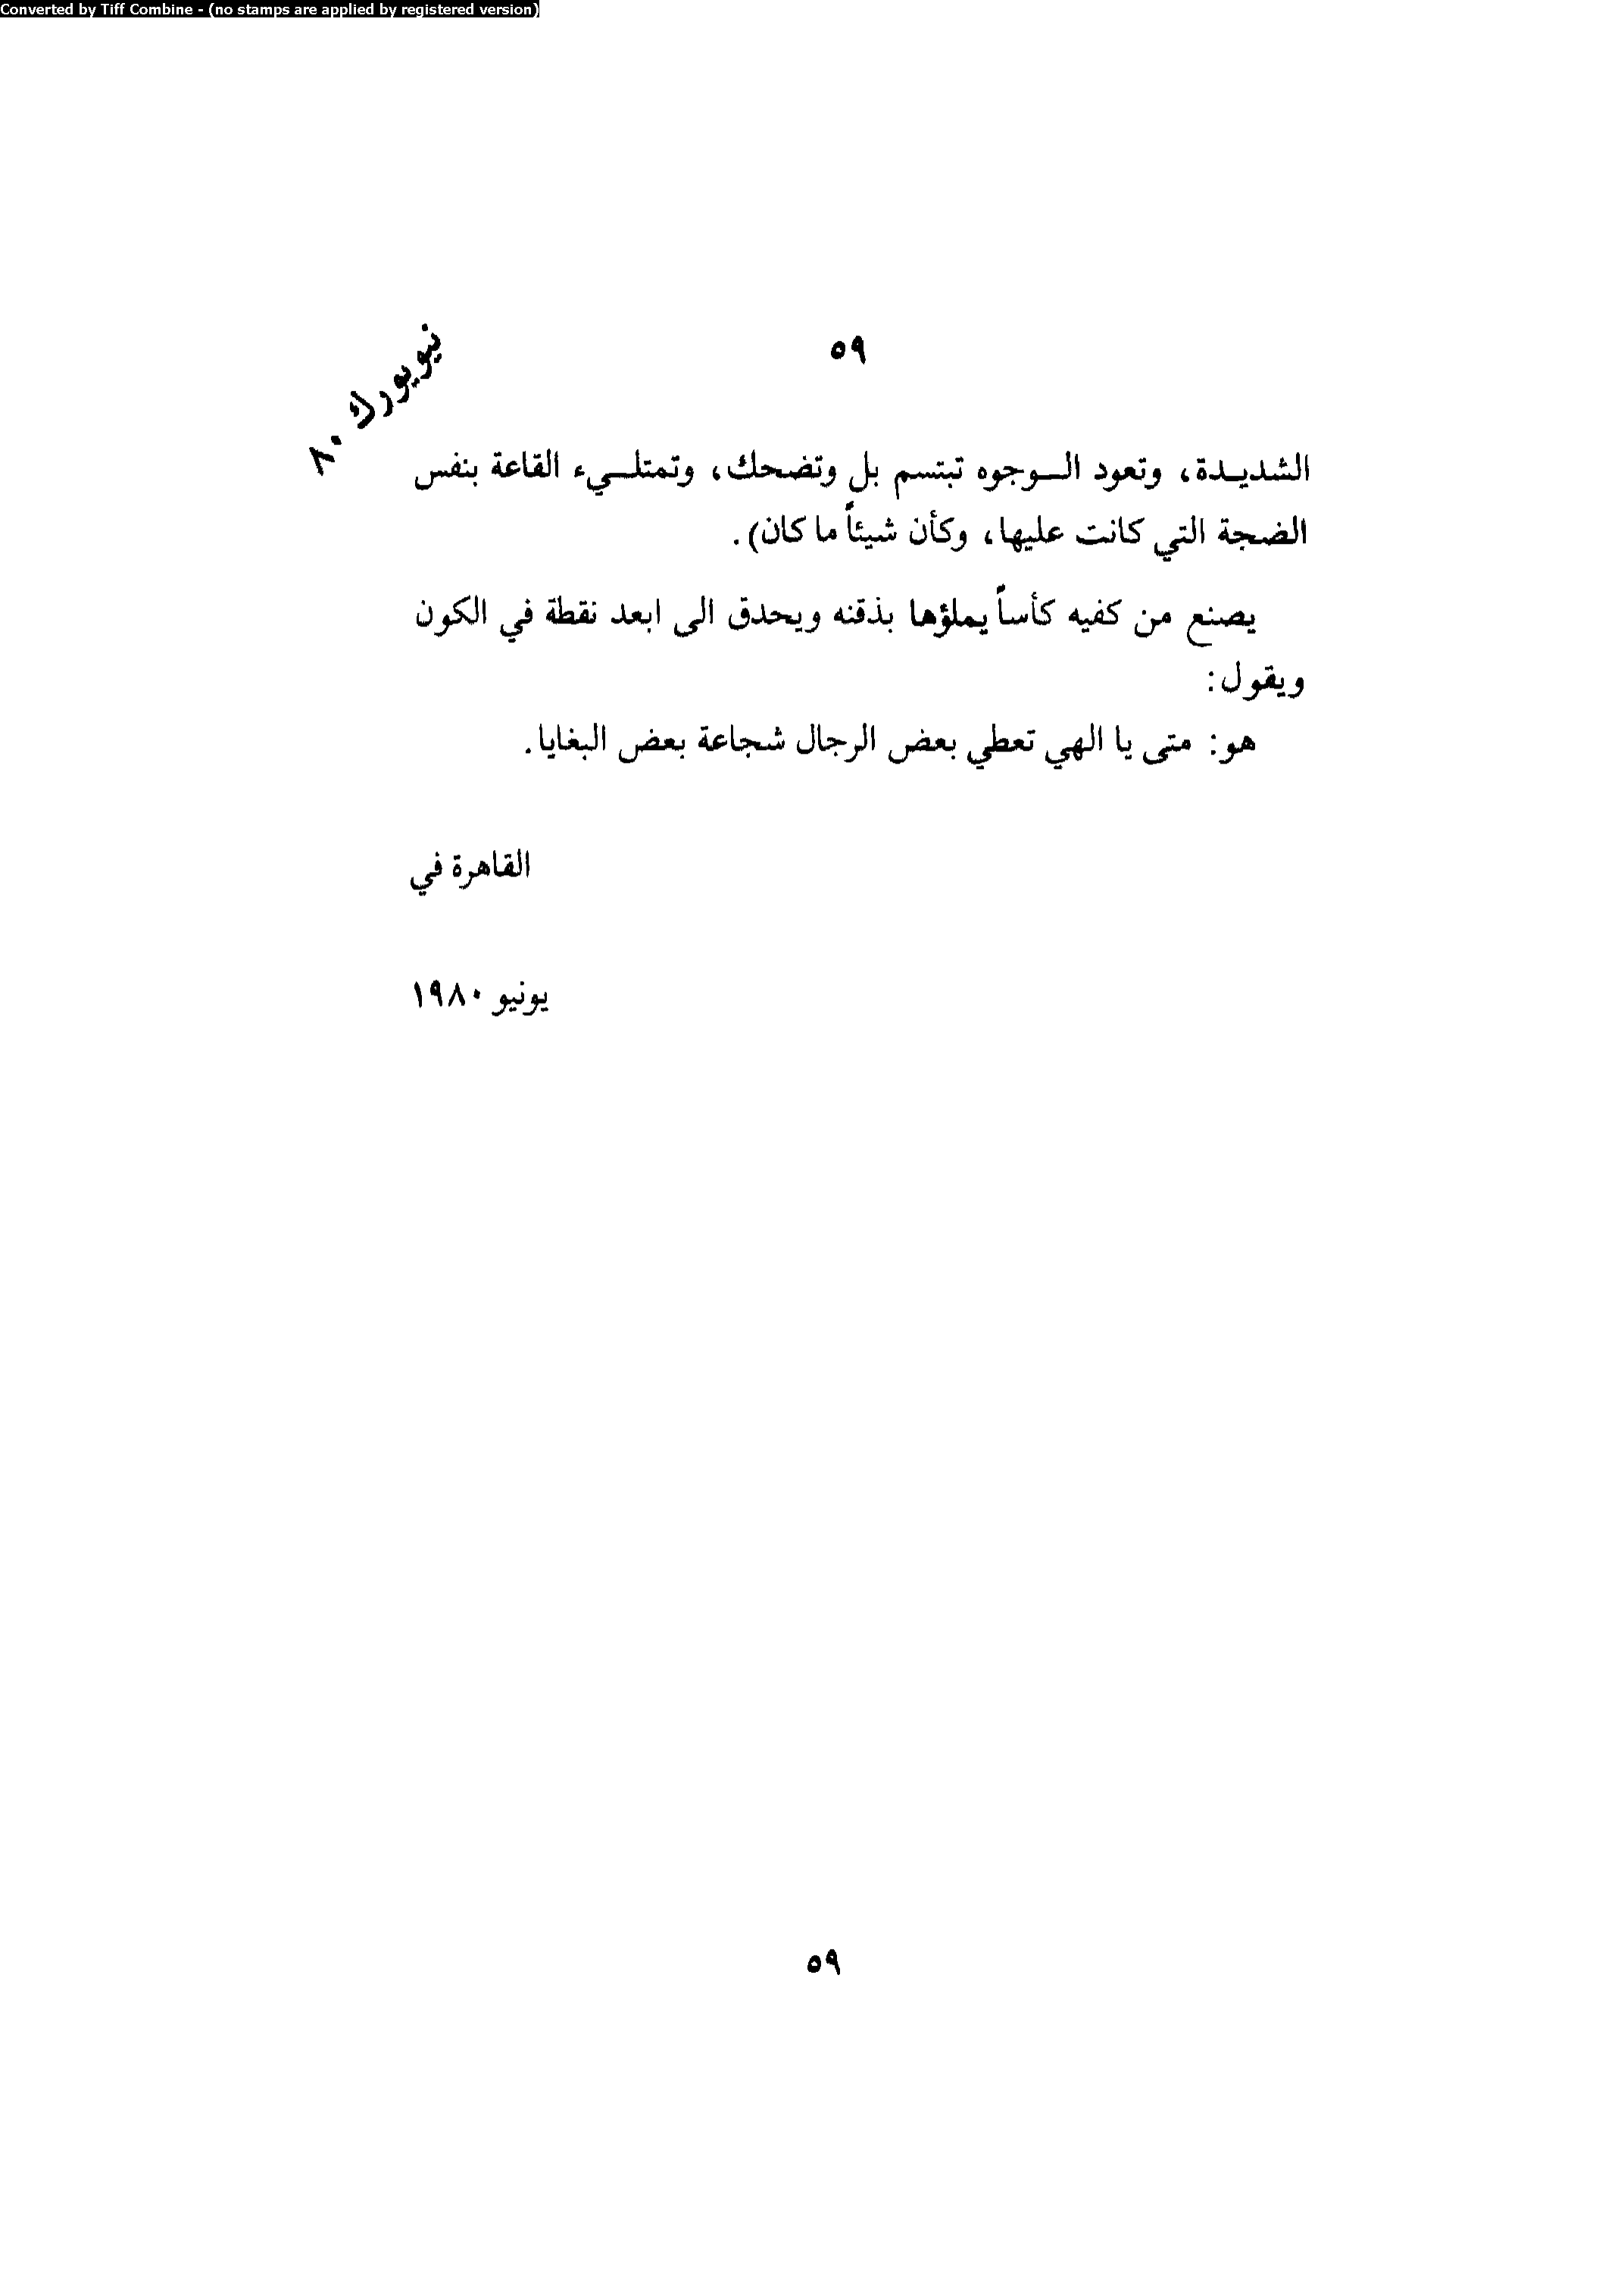 Converted by Tiff Combine - (no stamps are applied by registered version)
٥٩
نيويورك ٨٠
الشديدة، وتعود الوجوه تبتسم بل وتضحك، وتمتلىء القاعة بنفس
الضجة التي كانت عليها، وكأن شيئاً ما كان).
يصنع من كفيه كأساً يملؤها بذقنه ويحدق الى ابعد نقطة في الكون
ويقول:
هو: متى يا الهي تعطي بعض الرجال شجاعة بعض البغايا.
القاهرة في
يونيو ١٩٨٠
٥٩